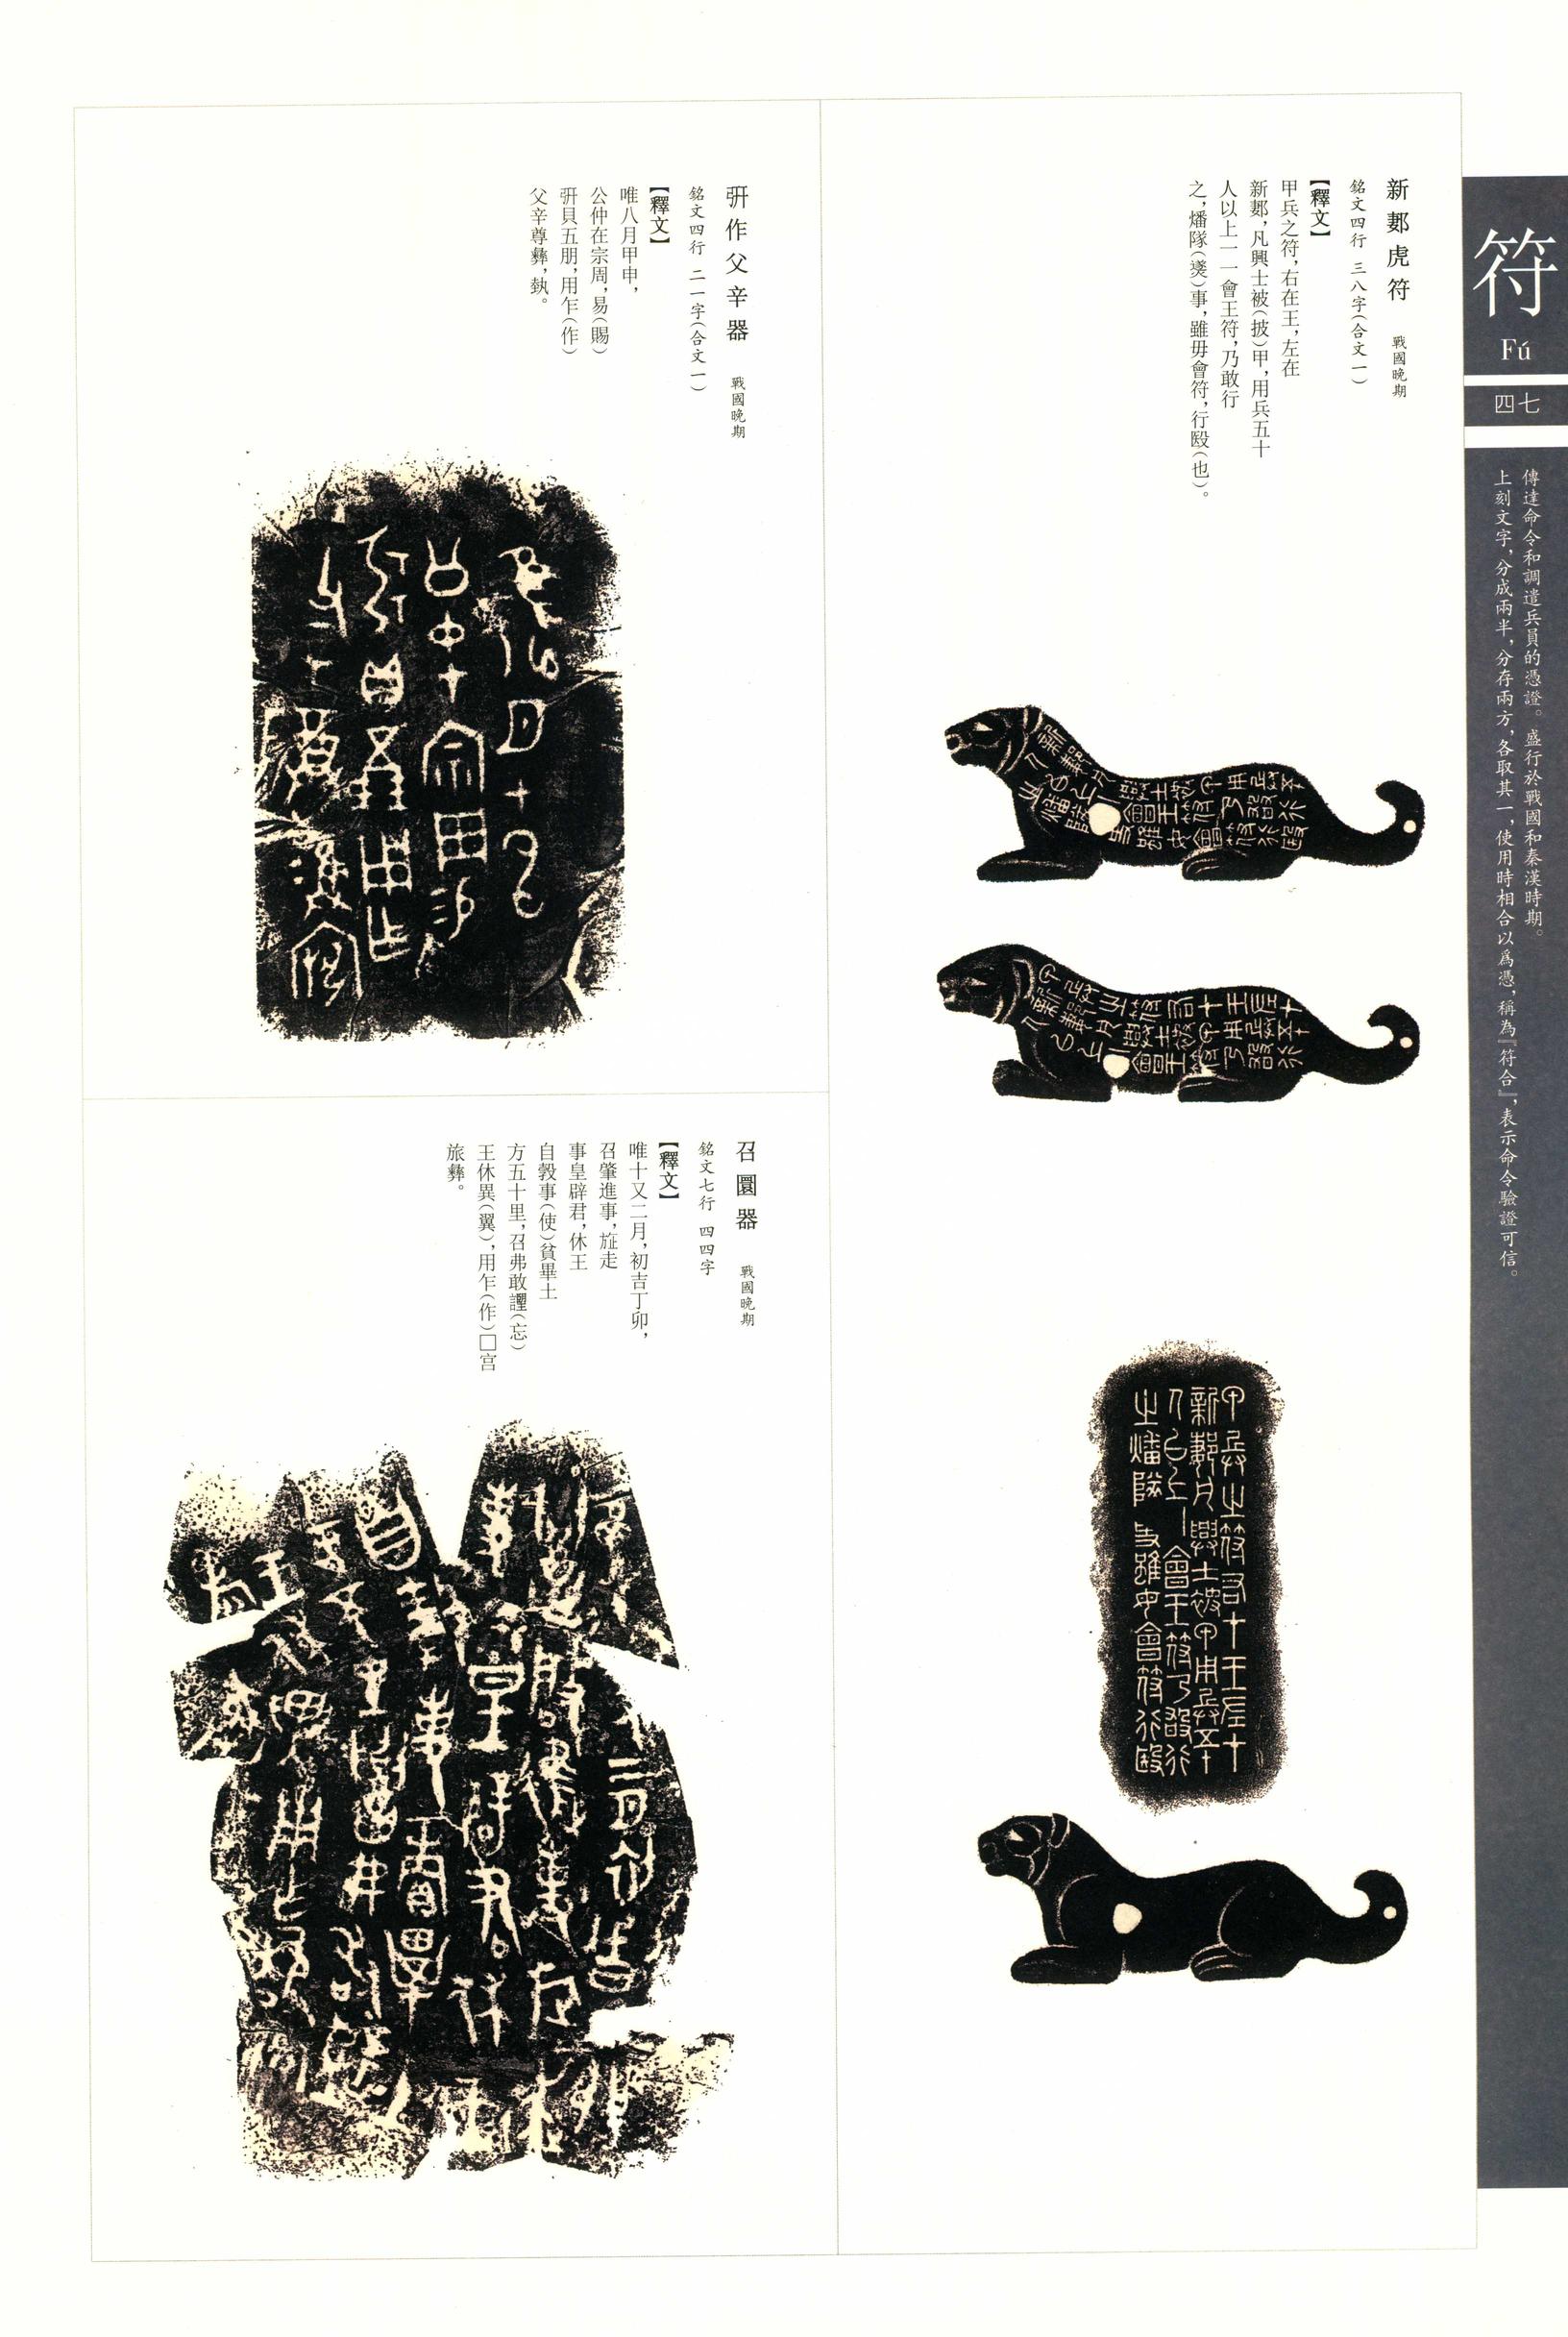 符
Fú
四七
傳達命令和調遣兵員的憑證。盛行於戰國和秦漢時期。
上刻文字，分成兩半，分存兩方，各取其一，使用時相合以爲憑，稱為『符合』，表示命令驗證可信。
新郪虎符 戰國晚期
銘文四行 三八字（合文一）
【釋文】
甲兵之符，右在王，左在
新郪，凡興士被（披）甲，用兵五十
人以上一一會王符，乃敢行
之，燔隊（㸂）事，雖毋會符，行殹（也）。
甲兵之符右在王左在
新郪凡興士被甲用兵五十
人以上一會王符乃敢行
之燔隊事雖毋會符行殹
作父辛器 戰國晚期
銘文四行 二一字（合文一）
【釋文】
唯八月甲申，
公仲在宗周，易（賜）
貝五朋，用乍（作）
父辛尊彝，𡘇。
召圜器 戰國晚期
銘文七行 四四字
【釋文】
唯十又二月，初吉丁卯，
召肇進事，旋走
事皇辟君，休王
自㝅事（使）賁畢土
方五十里，召弗敢䜴（忘）
王休異（翼），用乍（作）□宮
旅彝。